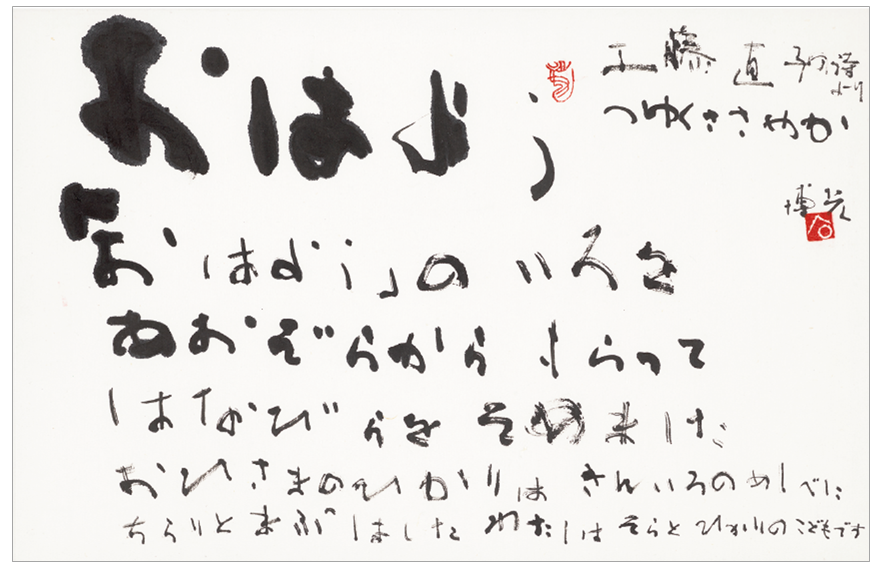 おはよう
工藤直子の詩より
つゆくささやか
「おはよう」のいろを
あおぞらからもらって
はなびらをそめました
おひさまのひかりは きんいろのめしべに
ちらりとまぶしました わたしは そらと ひかりのこどもです